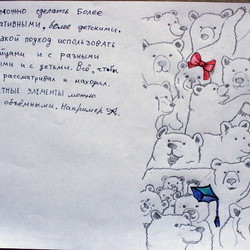 можно сделать более
ативными, более детскими.
акой подход использовать
и с разными
ми и с детьми. Всё, чтобы
рассматривал и находил.
тные элементы можно
объёмными. Например